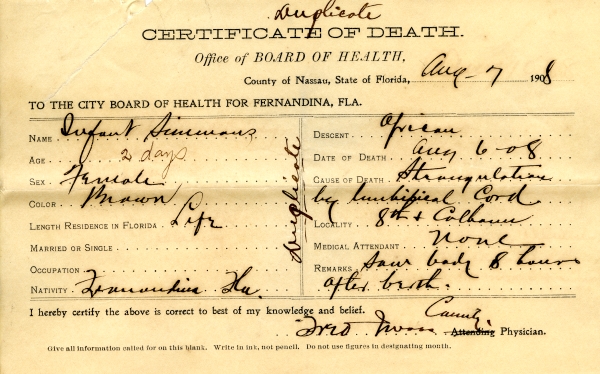 Duplicate
CERTIFICATE OF DEATH.
Office of BOARD OF HEALTH,
County of Nassau, State of Florida, Aug - 7 1908
TO THE CITY BOARD OF HEALTH FOR FERNANDINA, FLA.
NAME Infant Simmons
AGE 2 days
SEX Female
COLOR Brown
LENGTH RESIDENCE IN FLORIDA Life
MARRIED OR SINGLE
OCCUPATION
NATIVITY Fernandina Fla.
Duplicate
DESCENT African
DATE OF DEATH Aug 6-08
CAUSE OF DEATH Strangulation
by Umbilical Cord
LOCALITY 8th & Calhoun
MEDICAL ATTENDANT None
REMARKS Saw body 8 hours
after birth.
I hereby certify the above is correct to best of my knowledge and belief.
County
Fred Attending Physician.
Give all information called for on this blank. Write in ink, not pencil. Do not use figures in designating month.